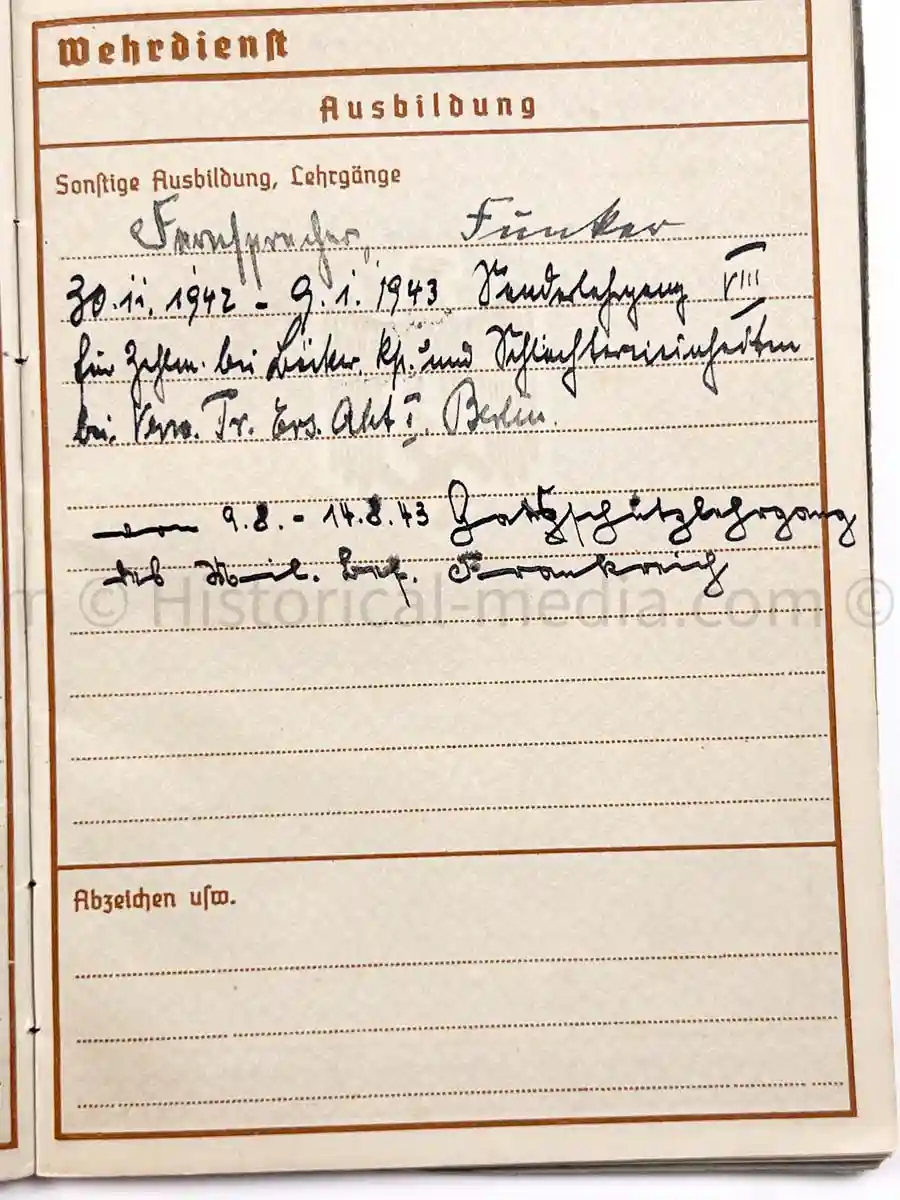 Wehrdienst
Ausbildung
Sonstige Ausbildung, Lehrgänge
Fernsprecher, Funker
30.11.1942 - 9.1.1943 Sonderlehrgang VIII
für Zahlm. bei Bäcker. Kp. und Schlachtereieinheiten
bei Verw. Tr. Ers. Abt I. Berlin.
von 9.8. - 14.8.43 Gasschutzlehrgang
des Mil. Bef. Frankreich
m © Historical-media.com ©
Abzeichen usw.